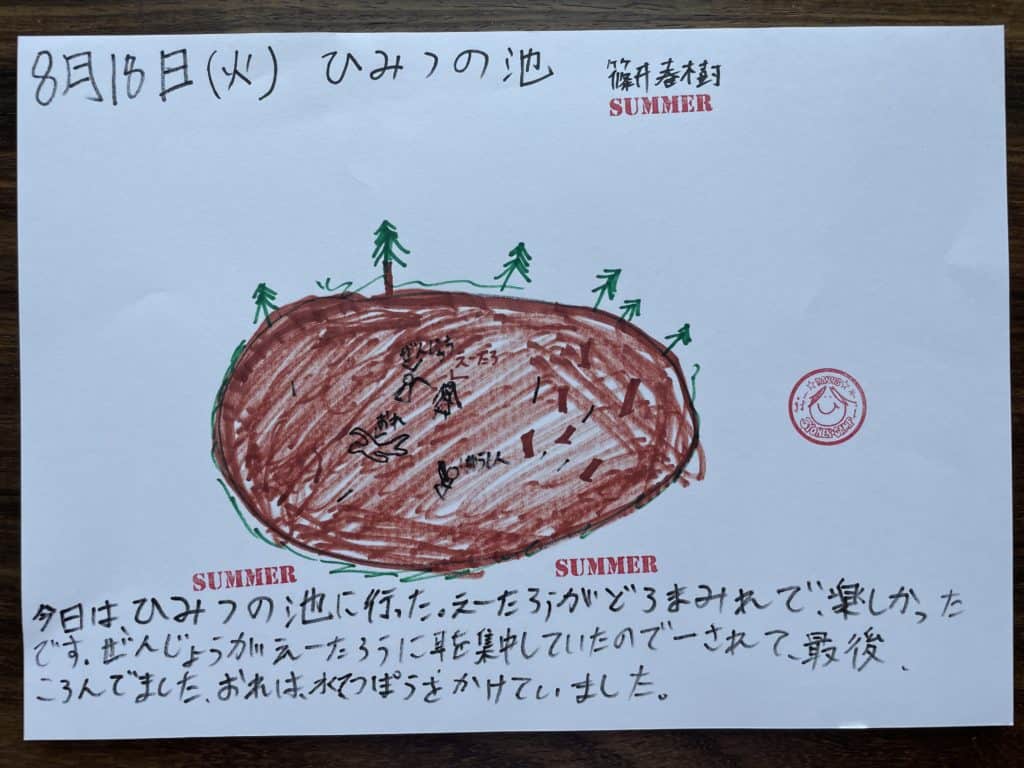 8月18日(火) ひみつの池 篠井春樹
SUMMER
ぜんじょう えーたろ
おれ
SUMMER SUMMER
今日は、ひみつの池に行った。えーたろうがどろまみれで、楽しかった
です。ぜんじょうが、えーたろうに耳を集中していたのでーされて、最後、
ころんでました、おれは、水でっぽうをかけていました。